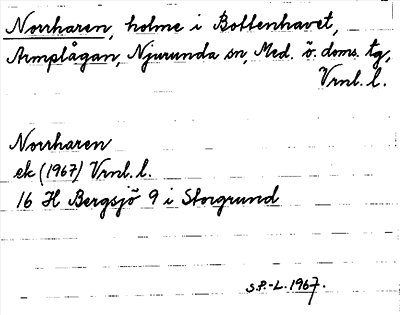 Norrharen, holme i Bottenhavet,
Armplågan, Njurunda sn, Med. ö. doms. tg,
Vrnl. l.
Norrharen
ek (1967) Vrnl. l.
16 H Bergsjö 9 i Storgrund
S.P.-L. 1967.